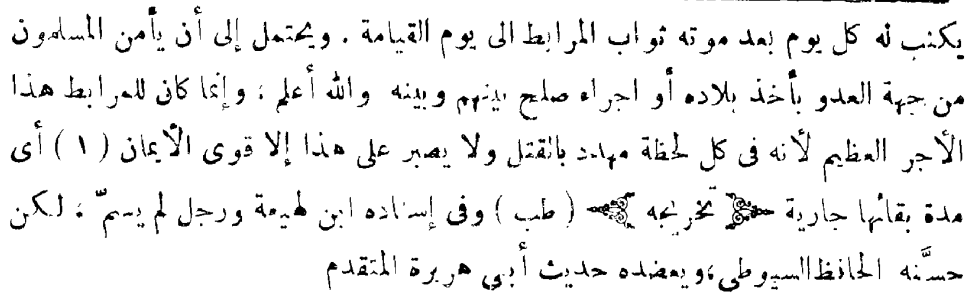 يكتب له كل يوم بعد موته ثواب المرابط الى يوم القيامة . ويحتمل إلى أن يأمن المسلمون
من جهة العدو بأخذ بلاده أو اجراء صلح بينهم وبينه والله أعلم ؛ وإنما كان للمرابط هذا
الأجر العظيم لأنه فى كل لحظة مهدد بالقتل ولا يصبر على هذا إلا قوى الأيمان ( ١ ) أى
مدة بقائها جارية تخريجه ( طب ) وفى إسناده ابن لهيعة ورجل لم يسمّ ؛ لكن
حسَّنه الحافظ السيوطى ؛ ويعضده حديث أبي هريرة المتقدم